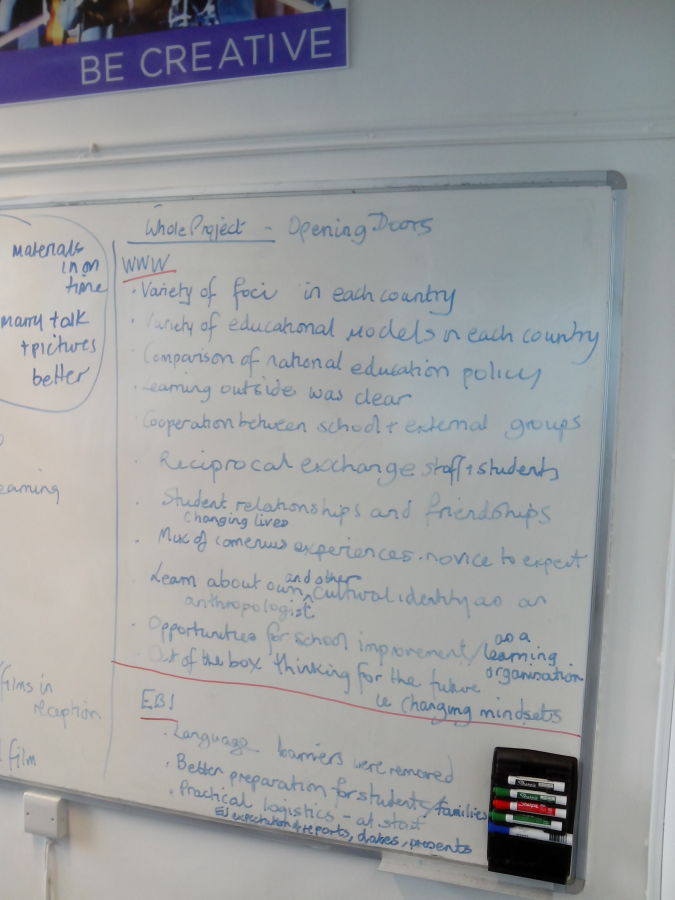 BE CREATIVE
materials
in on
time
marry talk
+ pictures
better
earning
films in
reception
film
Whole Project - Opening Doors
WWW
· Variety of foci in each country
· Variety of educational models in each country
· Comparison of national education policy
· Learning outside was clear
· Cooperation between school + external groups
· Reciprocal exchange staff + students
· Student relationships and friendships
changing lives
· Mix of comenius experiences - novice to expert
Learn about own and other cultural identity as an
anthropologist
· Opportunities for school improvement / as a
learning
organisation
· Out of the box thinking for the future
ie changing mindsets
EBI
· Language barriers were removed
· Better preparation for students / families
· Practical logistics - at start
EU expectation of reports, dates, presents
Sharpie